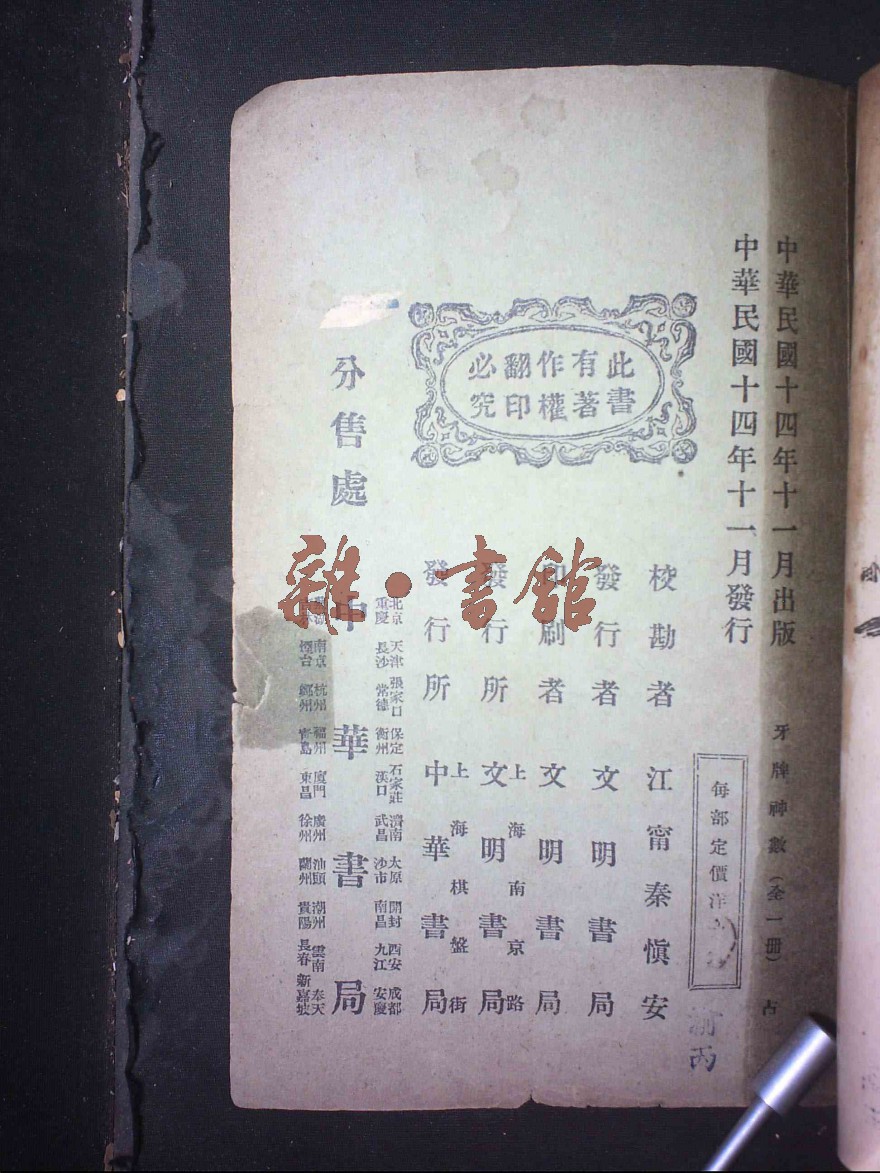 中華民國十四年十一月出版
中華民國十四年十一月發行
牙牌神數（全一冊）
占
每部定價洋
丙
此書
有著
作權
翻印
必究
校勘者 江甯秦慎安
發行者 文明書局
印刷者 文明書局
上海南京路
發行所 文明書局
上海棋盤街
發行所 中華書局
分售處 中華書局
北京 天津 張家口 保定 石家莊 濟南 太原 開封 西安 成都
重慶 長沙 常德 衡州 漢口 武昌 沙市 南昌 九江 安慶
南京 杭州 福州 廈門 廣州 汕頭 潮州 雲南 奉天
煙台 鄭州 青島 東昌 徐州 蘭州 貴陽 長春 新嘉坡
雜·書館